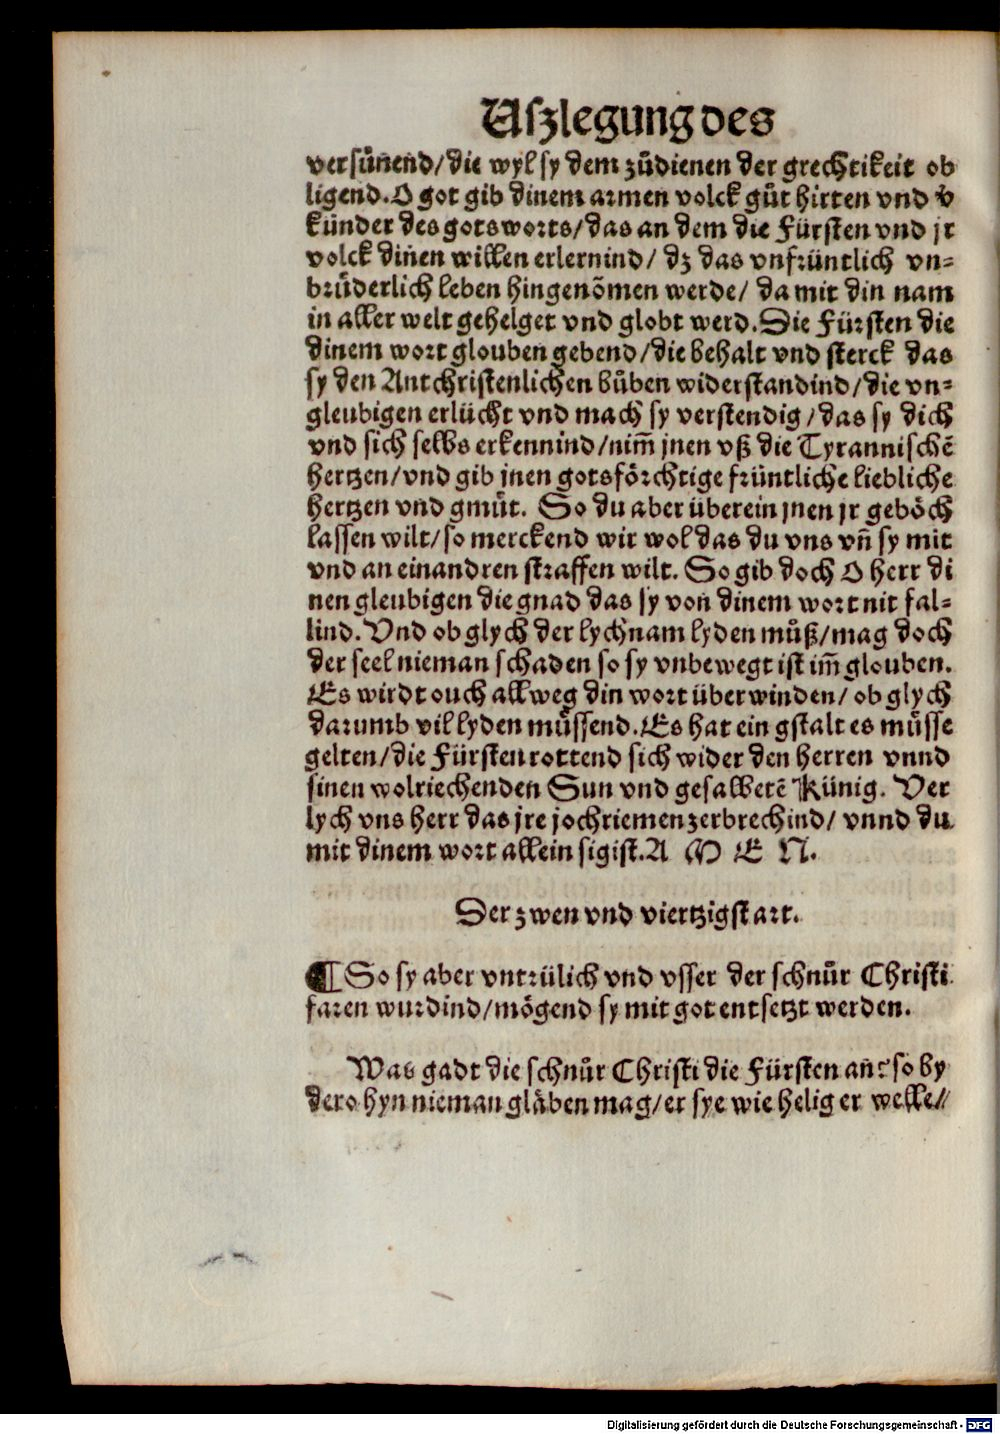 Uszlegung des
versůnend/die wyl sy dem zůdienen der grechtikeit ob
ligend. O got gib dinem armen volck gůt hirten vnd v̄
künder des gotsworts/das an dem die Fürsten vnd jr
volck dinen willen erlernind/ dz das vnfrüntlich vn-
brüderlich leben hingenōmen werde/ da mit din nam
in aller welt gehelget vnd globt werd. Die Fürsten die
dinem wort glouben gebend/die behalt vnd sterck das
sy den Antchristenlichen bůben widerstandind/die vn-
gleubigen erlücht vnd mach sy verstendig/das sy dich
vnd sich selbs erkennind/nim̄ jnen vß die Tyrannischē
hertzen/vnd gib jnen gotsförchtige früntliche liebliche
hertzen vnd gmůt. So du aber überein jnen jr geböch
lassen wilt/so merckend wir wol das du vns vn̄ sy mit
vnd an einandren straffen wilt. So gib doch O herr di
nen gleubigen die gnad das sy von dinem wort nit fal-
lind. Vnd ob glych der lychnam lyden můß/mag doch
der seel nieman schaden so sy vnbewegt ist im̄ glouben.
Es wirdt ouch allweg din wort überwinden/ ob glych
darumb vil lyden můssend. Es hat ein gstalt es můsse
gelten/die Fürsten rottend sich wider den herren vnnd
sinen wolriechenden Sun vnd gesalbetē Künig. Ver
lych vns herr das jre jochriemen zerbrechind/ vnnd du
mit dinem wort allein sigist. A M E N.
Der zwen vnd viertzigst art.
¶ So sy aber vntrülich vnd vsser der schnůr Christi
faren wurdind/mögend sy mit got entsetzt werden.
Was gadt die schnůr Christi die Fürsten an? so by
dero hyn nieman gläben mag/er sye wie helig er welle/
Digitalisierung gefördert durch die Deutsche Forschungsgemeinschaft - DFG